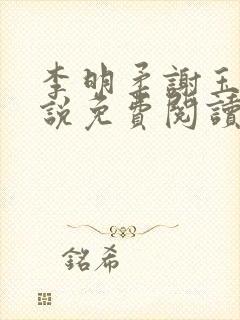 李明柔謝玉
說免費閱讀
銘希